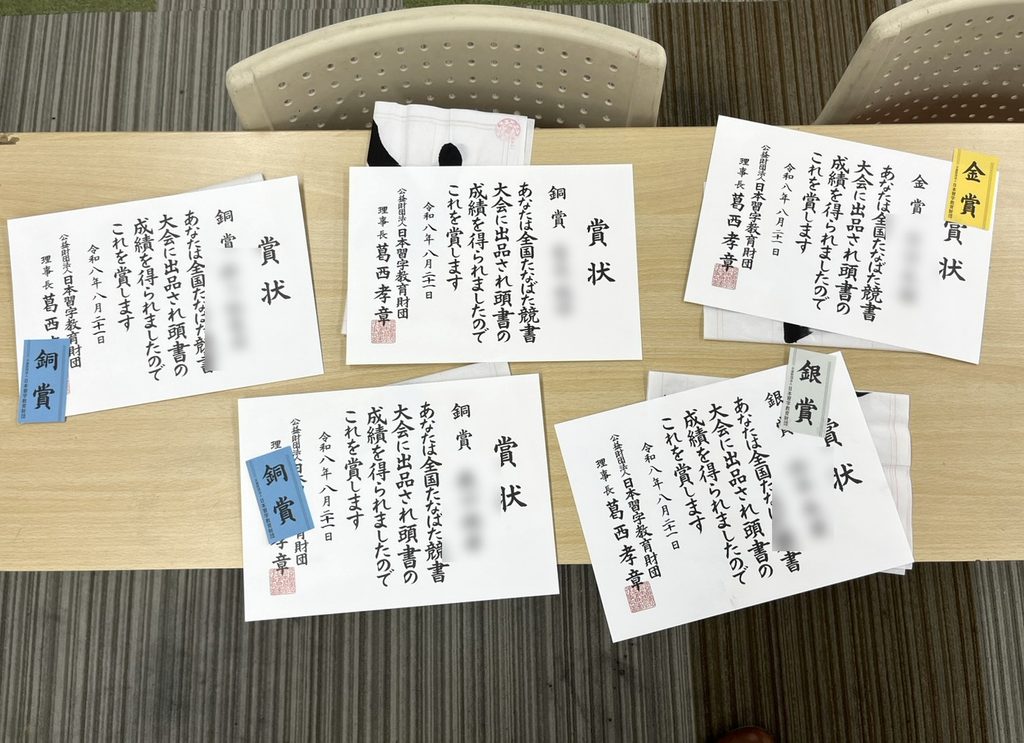 賞状
銅賞
あなたは全国たなばた競書
大会に出品され頭書の
成績を得られましたので
これを賞します
令和八年八月二十一日
公益財団法人日本習字教育財団
理事長 葛西
銅賞
日本習字教育財団
賞状
銅賞
あなたは全国たなばた競書
大会に出品され頭書の
成績を得られましたので
これを賞します
令和八年八月二十一日
公益財団法人日本習字教育財団
理事長 葛西孝章
金賞
日本習字教育財団
賞状
金賞
あなたは全国たなばた競書
大会に出品され頭書の
成績を得られましたので
これを賞します
令和八年八月二十一日
公益財団法人日本習字教育財団
理事長 葛西孝章
賞状
銅賞
あなたは全国たなばた競書
大会に出品され頭書の
成績を得られましたので
これを賞します
令和八年八月二十一日
公益財団法人日 育財団
理 孝章
銅賞
日本習字教育財団
銀賞
日本習字教育財団
賞状
銀賞
あなたは全国たなばた競書
大会に出品され頭書の
成績を得られましたので
これを賞します
令和八年八月二十一日
公益財団法人日本習字教育財団
理事長 葛西孝章